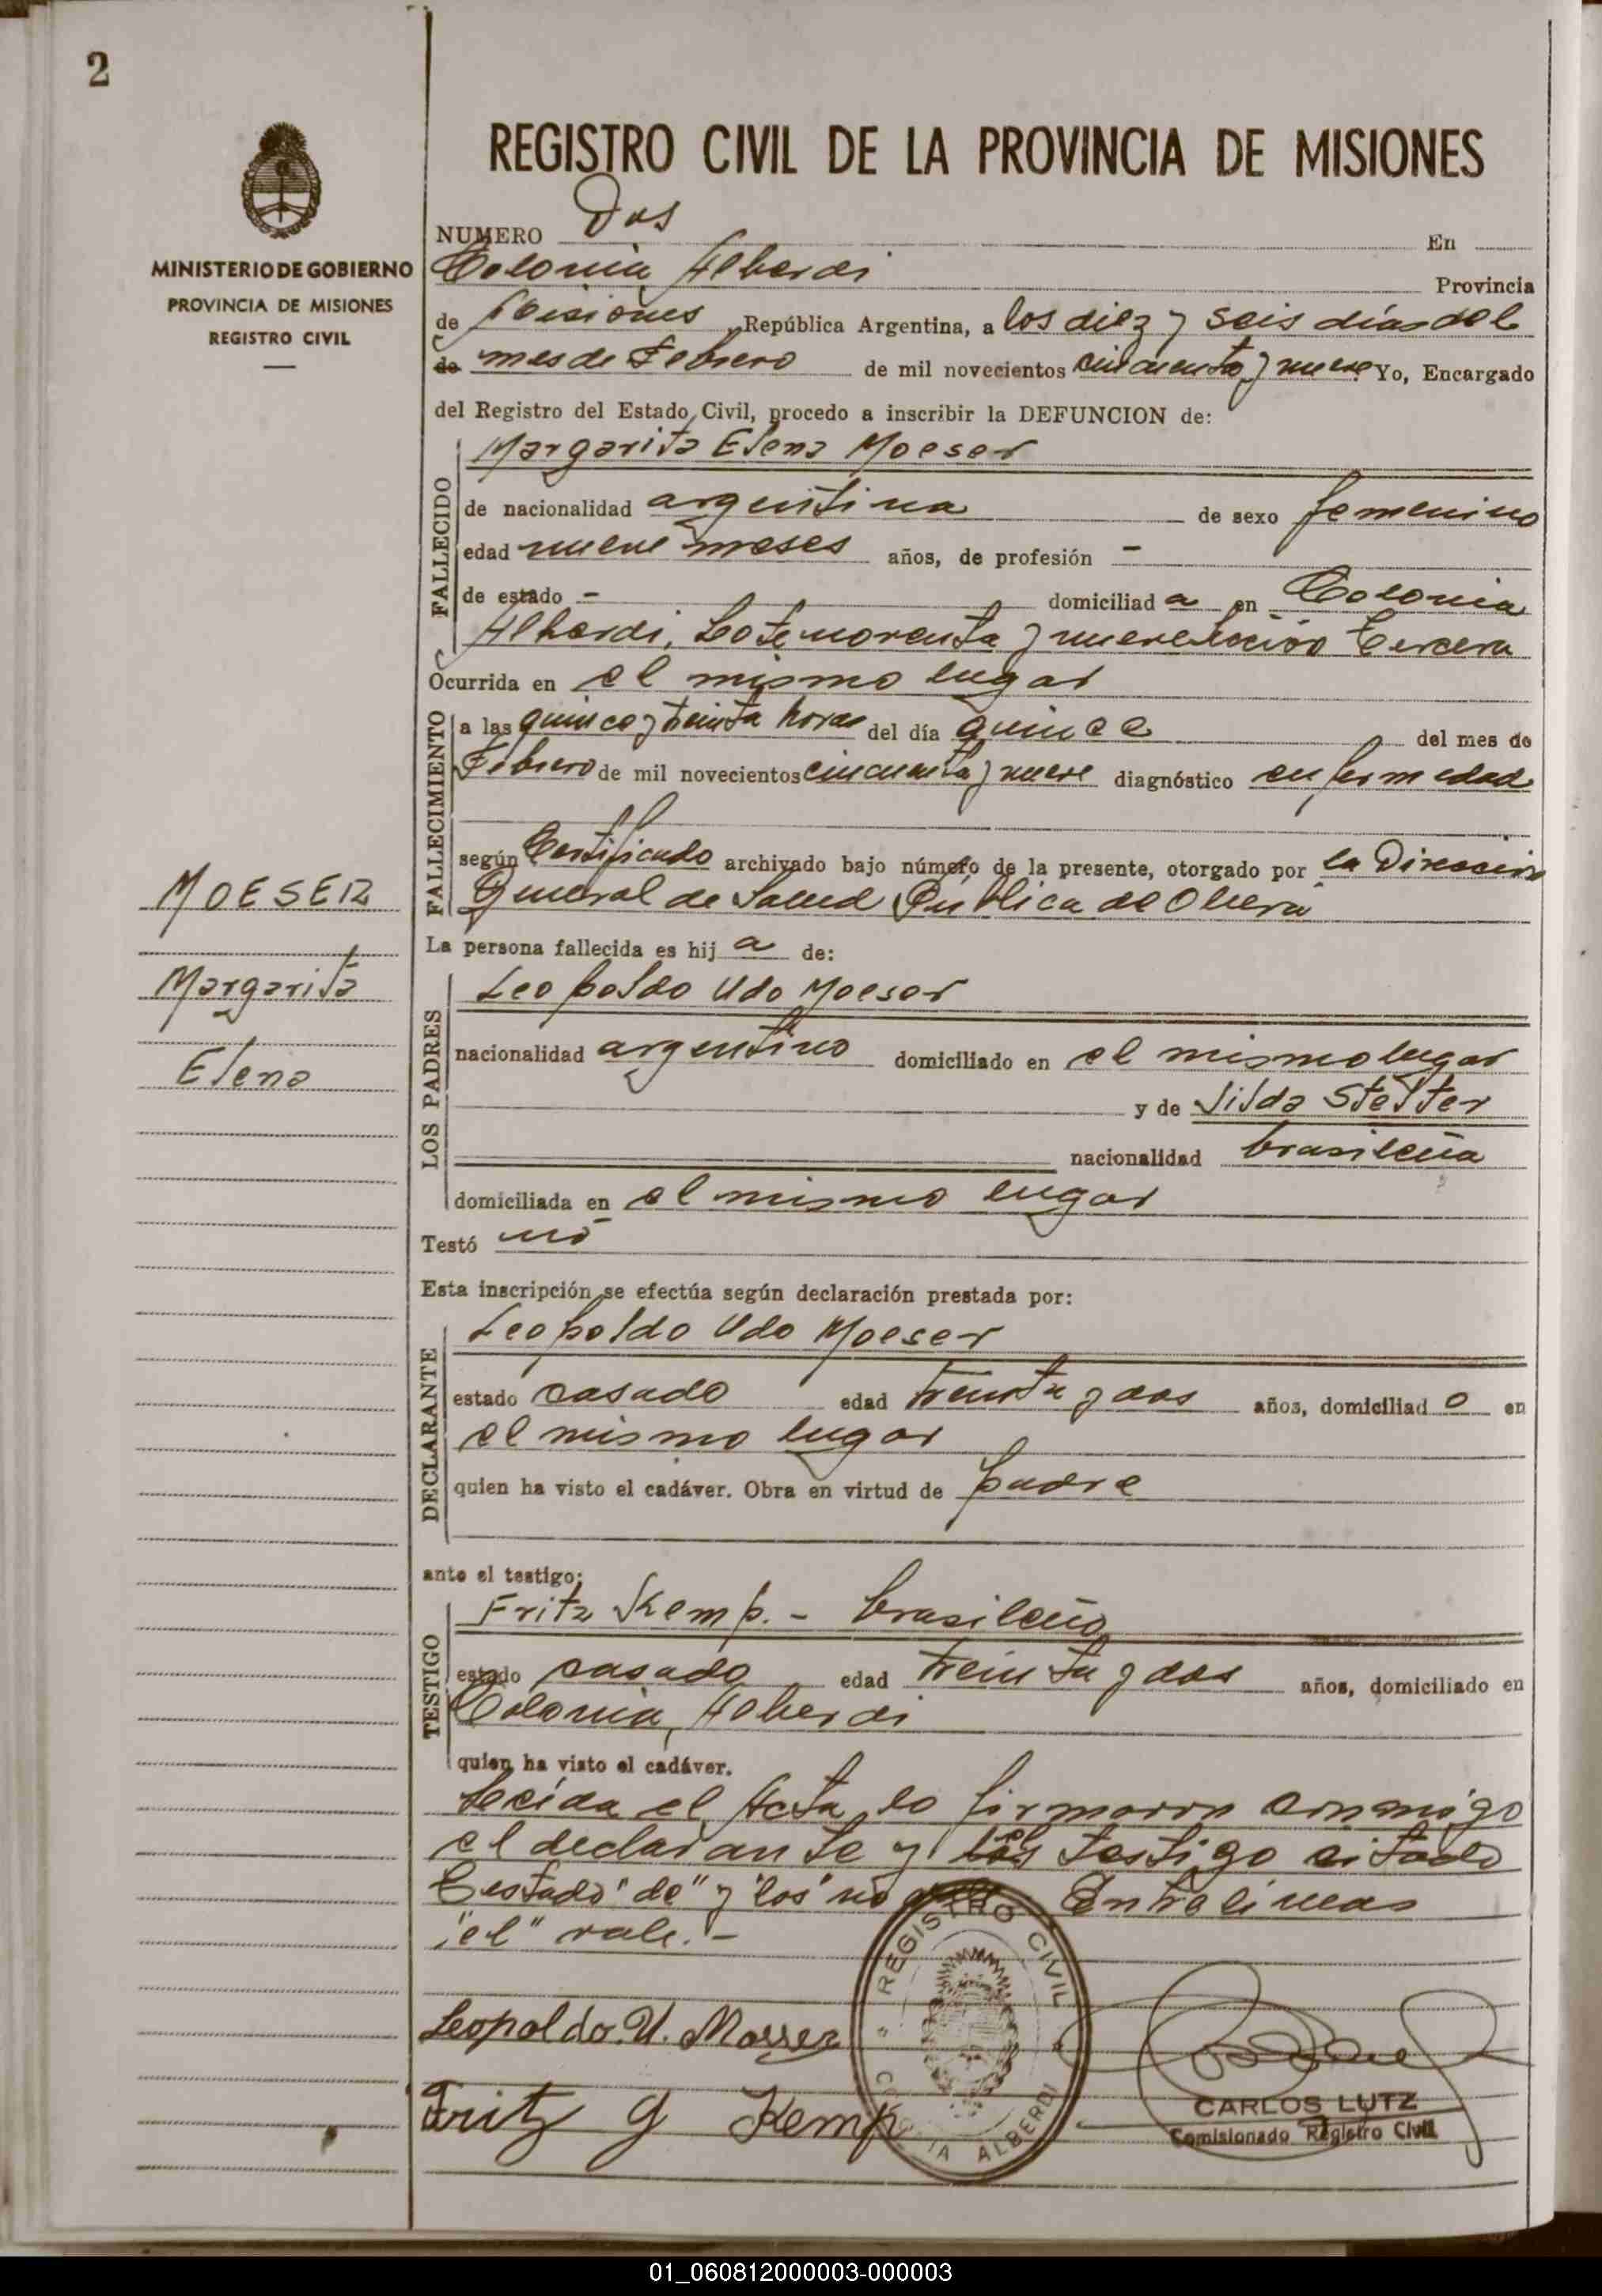 2
REGISTRO CIVIL DE LA PROVINCIA DE MISIONES
MINISTERIO DE GOBIERNO
PROVINCIA DE MISIONES
REGISTRO CIVIL
NUMERO Dos En
Colonia Alberdi Provincia
de Misiones República Argentina, a los diez y seis días del
de mes de Febrero de mil novecientos cincuenta y nueve Yo, Encargado
del Registro del Estado Civil, procedo a inscribir la DEFUNCION de:
FALLECIDO
Margarita Elena Moeser
de nacionalidad argentina de sexo femenino
edad nueve meses años, de profesión -
de estado - domiciliad a en Colonia
Alberdi, Lote noventa y nueve Sección Tercera
Ocurrida en el mismo lugar
FALLECIMIENTO
a las quince y treinta horas del día quince del mes de
Febrero de mil novecientos cincuenta y nueve diagnóstico enfermedad
según Certificado archivado bajo número de la presente, otorgado por la Dirección
General de Salud Pública de Oberá
MOESER
Margarita
Elena
La persona fallecida es hij a de:
LOS PADRES
Leopoldo Udo Moeser
nacionalidad argentino domiciliado en el mismo lugar
y de Jilda Stelter
nacionalidad brasileña
domiciliada en el mismo lugar
Testó nó
Esta inscripción se efectúa según declaración prestada por:
DECLARANTE
Leopoldo Udo Moeser
estado casado edad treinta y dos años, domiciliad o en
el mismo lugar
quien ha visto el cadáver. Obra en virtud de padre
ante el testigo:
TESTIGO
Fritz Kemp. - brasileño
estado casado edad treinta y dos años, domiciliado en
Colonia Alberdi
quien ha visto el cadáver.
Leída el Acta, la firmaron conmigo
el declarante y los el testigo citado
Testado "de" y "los" no vale Entrelíneas
"el" vale. -
Leopoldo. U. Moeser
Fritz G Kemp
REGISTRO CIVIL
COLONIA ALBERDI
CARLOS LUTZ
Comisionado Registro Civil
01_060812000003-000003